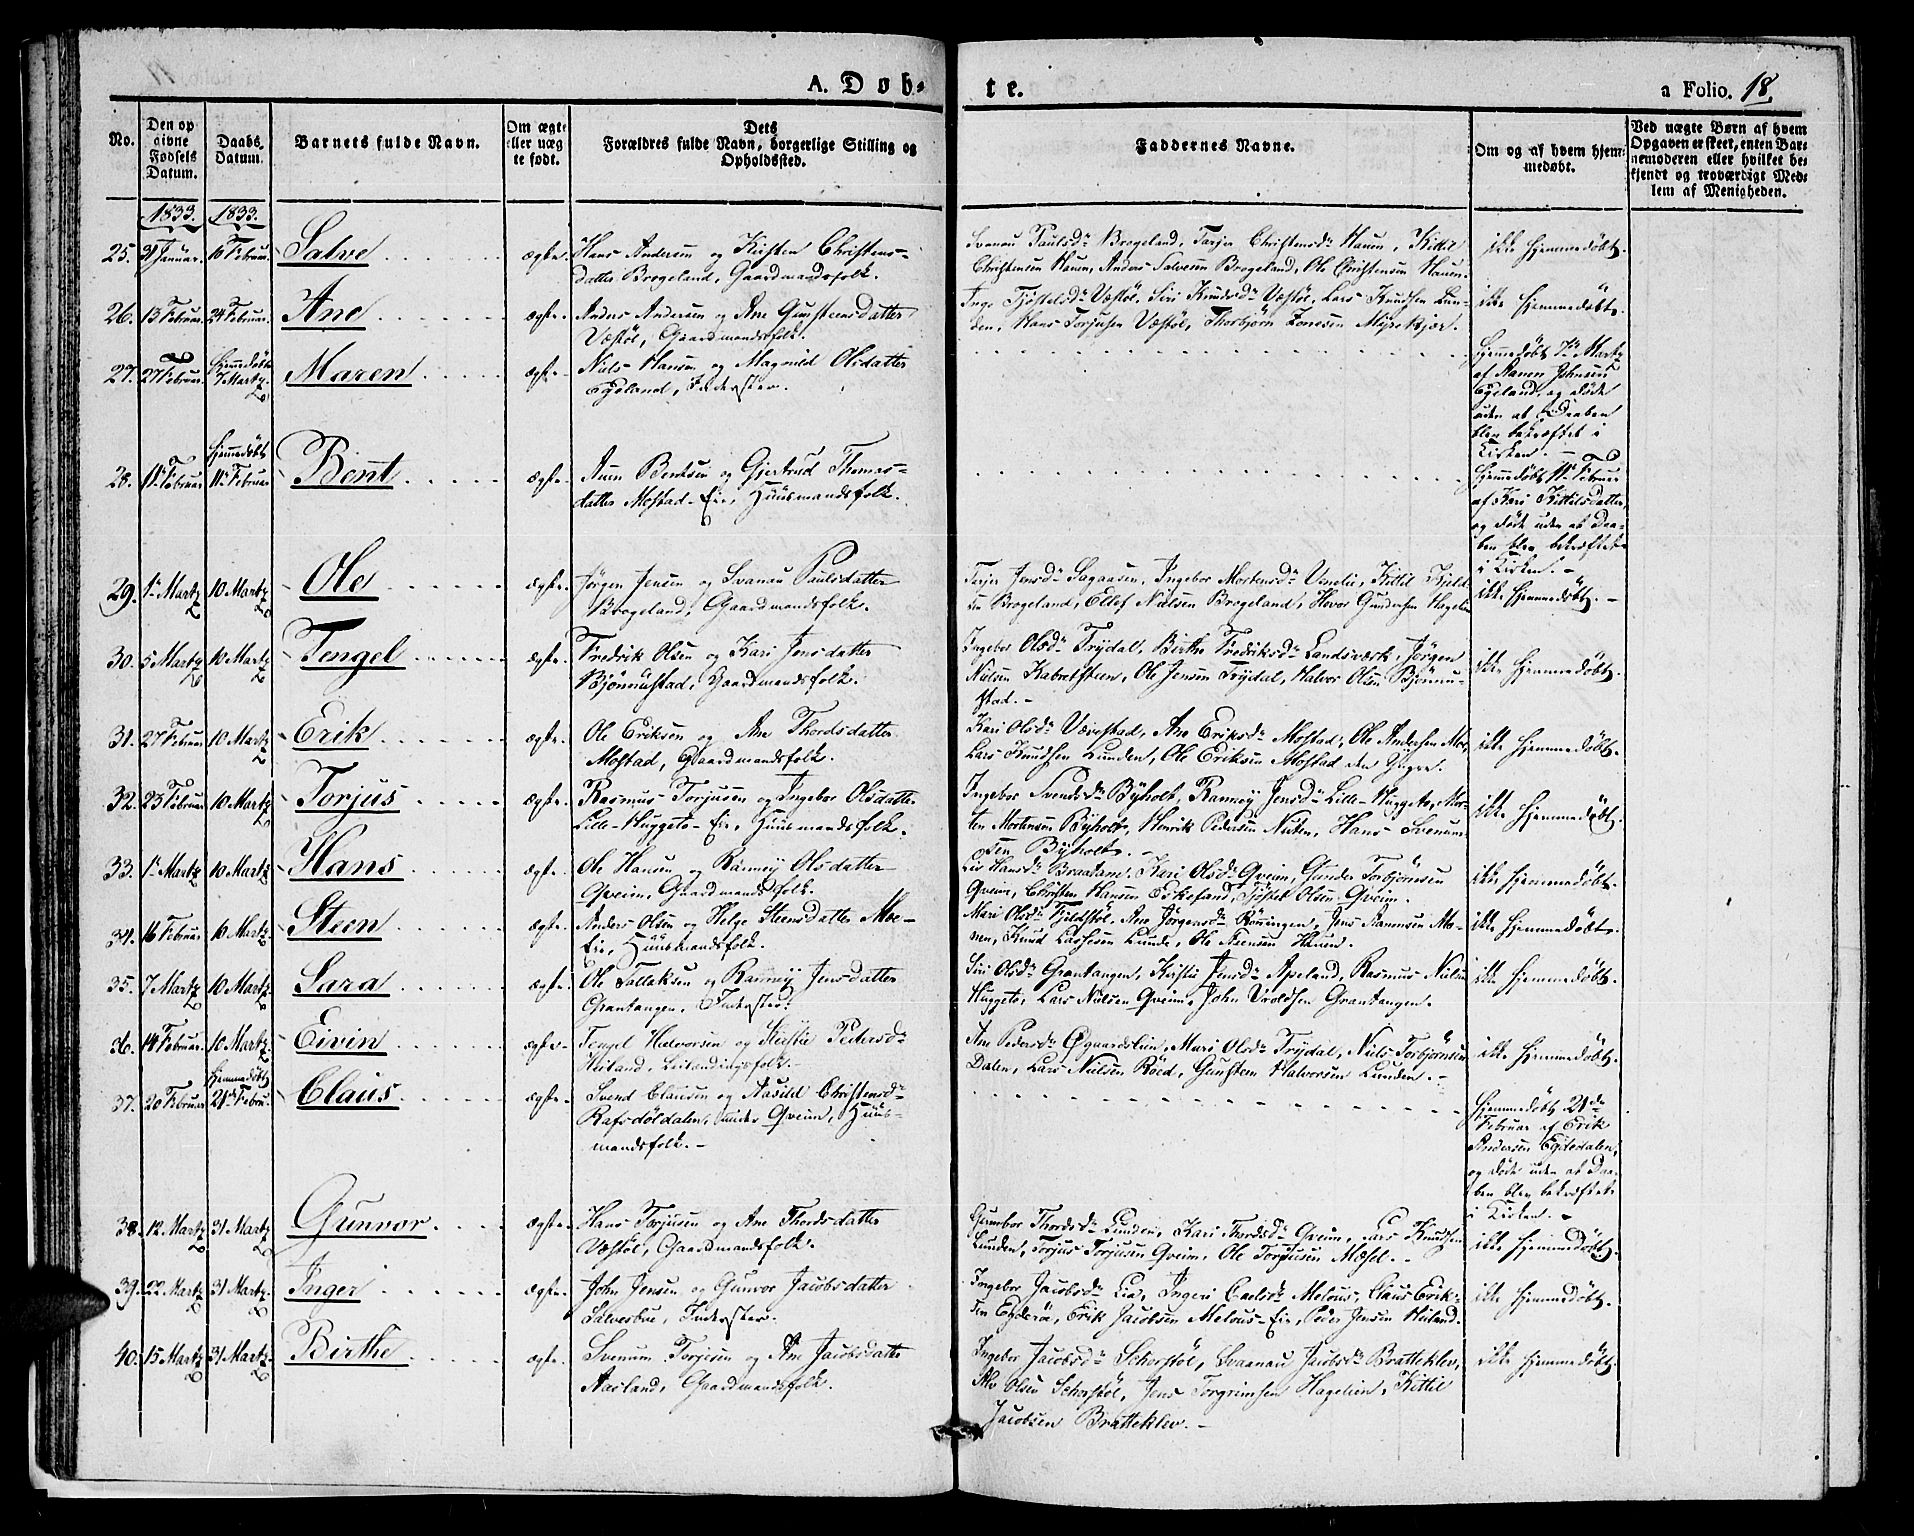 A. Døb=
te.
a Folio. 18.
No.
Den op
givne
Fødsels
Datum.
Daabs
Datum.
Barnets fulde Navn.
Om ægt=
eller uæg
te født.
Dets
Forældres fulde Navn, borgerlige Stilling og
Opholdssted.
Faddernes Navne.
Om og af hvem hjem
medøbt.
Ved uægte Børn af hvem
Opgaven er skeet, enten Bar=
nemoderen eller hvilket be=
kjendt og troværdigt Med=
lem af Menigheden.
1833. 1833.
25. 31 Januar. 10 Februar. Salve ægte. Hans Andersen og Kirsten Christens-
datter Brogeland, Gaardmandsfolk.
Svanau Paulsdr Brogeland, Tarjer Christensdr Hauen, Kittil
Christensen Hauen, Anders Salvesen Brogeland, Ole Christensen Hauen.
ikke hjemmedøbt.
26. 13 Februar. 24 Februar. Ane ægte. Anders Andersen og Ane Gunsteensdatter
Væstöl, Gaardmandsfolk.
Inge Tjöstelsdr Væstöl, Siri Knudsdr Væstöl, Lars Knudsen Lun-
den, Hans Torjusen Væstöl, Thorbjörn Jonesen Myrekjær.
ikke hjemmedöbt.
27. 27 Februar. hjemmedöbt
7 Martz. Maren ægte. Niels Hansen og Magnild Olsdatter
Egeland, Inderster.
hjemmedöbt 7de Martz
af Maren Johnsen
Egeland, og döde
uden at Daaben
blev bekræftet i
Kirken. -
28. 11te Februar hjemmedöbt
11te Februar Bent ægte. Auen Bentsen og Gjertrud Thomas-
datter Mostad-Eie, Huusmandsfolk.
hjemmedöbt 11te Februar
af Kari Kittilsdatter,
og döde uden at Daa-
ben blev bekræftet
i Kirken. -
29. 1te Martz 10 Martz Ole ægte. Jörgen Jensen og Svanau Paulsdatter
Brogeland, Gaardmandsfolk.
Tarjer Jensdr Lagaasen, Ingebor Mortensdr Umlie, Kittil Kield-
sen Brogeland, Ellef Nielsen Brogeland, Hovor Gundersen Hagelien
ikke hjemmedöbt. -
30. 5 Martz 10 Martz Tengel ægte. Fredrik Olsen og Kari Jensdatter
Bjönnustad, Gaardmandsfolk.
Ingebor Olsdr Trydal, Birthe Fredriksdr Landsværk, Jörgen
Nielsen Kabretsteen, Ole Jensen Trydal, Halvor Olsen Bjönnu-
stad. -
ikke hjemmedöbt.
31. 27 Februar 10 Martz Erik ægte. Ole Eriksen og Ane Thordsdatter
Mostad, Gaardmandsfolk.
Kari Olsdr Vævestad, Ane Eriksdr Mostad, Ole Andersen Moe,
Lars Knudsen Lunden, Ole Eriksen Mostad den Yngre.
ikke hjemmedöbt.
32. 23 Februar. 10 Martz Torjus ægte. Rasmus Torjusen og Ingebor Olsdatter
Lille-Huggeto-Eie, Huusmandsfolk.
Ingebor Svendsdr Byholt, Rannøy Jensdr Lille-Huggeto, Mor-
ten Mortensen Byholt, Henrik Pedersen Nuten, Hans Svenum-
sen Byholt. -
ikke hjemmedöbt.
33. 1te Martz 10 Martz Hans ægte. Ole Hansen og Rannøy Olsdatter
Qveim, Gaardmandsfolk.
Lis Hansdr Braaland, Kari Olsdr Qveim, Gunder Torbjörnsen
Qveim, Christen Hansen Eskeland, Tjöstel Olsen Qveim.
ikke hjemmedöbt.
34. 16 Februar 10 Martz Steen ægte. Anders Olsen og Helge Steensdatter Moe-
Eie, Huusmandsfolk.
Mari Olsdr Fjeldstöl, Ane Jörgensdr Rönningen, Jens Aanonsen Mo-
nen, Knud Lassesen Lunde, Ole Steensen Hauen.
ikke hjemmedöbt.
35. 7 Martz 10 Martz Sara ægte. Ole Tallaksen og Rannøy Jensdatter
Grantangen, Inderster.
Siri Olsdr Grantangen, Kirstie Jensdr Apeland, Rasmus Nielsen
Huggeto, Lars Nielsen Qveim, John Vroldsen Grantangen.
ikke hjemmedöbt.
36. 14 Februar. 10 Martz. Eivin ægte. Tengel Halvorsen og Kirstie Pedersdr
Heiland, Leilændingsfolk.
Ane Pedersdr Ögaardslien, Mari Olsdr Trydal, Niels Torbjörnsen
Dalen, Lars Nielsen Röed, Gunsteen Halvorsen Lunden. -
ikke hjemmedöbt.
37. 20 Februar hjemmedöbt
21de Febru. Claus ægte. Svend Clausen og Aasild Christensdr
Rafsdöldalen, under Qveim, Huus-
mandsfolk. -
hjemmedöbt 21de
Februar af Erik
Andersen Egitedalen,
og döde uden at Daa-
ben blev bekræftet
i Kirken. -
38. 12 Martz 31 Martz Gunvor ægte. Hans Torjusen og Ane Thordsdatter
Væstöl, Gaardmandsfolk.
Gunnbor Thordsdr Lunden, Kari Thordsdr Qveim, Lars Knudsen
Lunden, Torjus Torjusen Qveim, Ole Torjusen Mæsel. -
ikke hjemmedöbt.
39. 22 Martz 31 Martz. Inger ægte. John Jensen og Gunvor Jacobsdatter
Salvesbue, Inderster.
Ingebor Jacobsdr Lia, Ingeri Carlsdr Melous, Claus Erik-
sen Engderö, Erik Jacobsen Melous-Eie, Peder Jensen Heiland.
ikke hjemmedöbt.
40. 15 Martz 31 Martz. Birthe ægte. Svenum Torjesen og Ane Jacobsdatter
Aasland, Gaardmandsfolk.
Ingebor Jacobsdr Schorstöl, Svaanau Jacobsdr Bratteklev,
Alv Olsen Schorstöl, Jens Torgrimsen Hagelien, Kittil
Jacobsen Bratteklev. -
ikke hjemmedöbt.